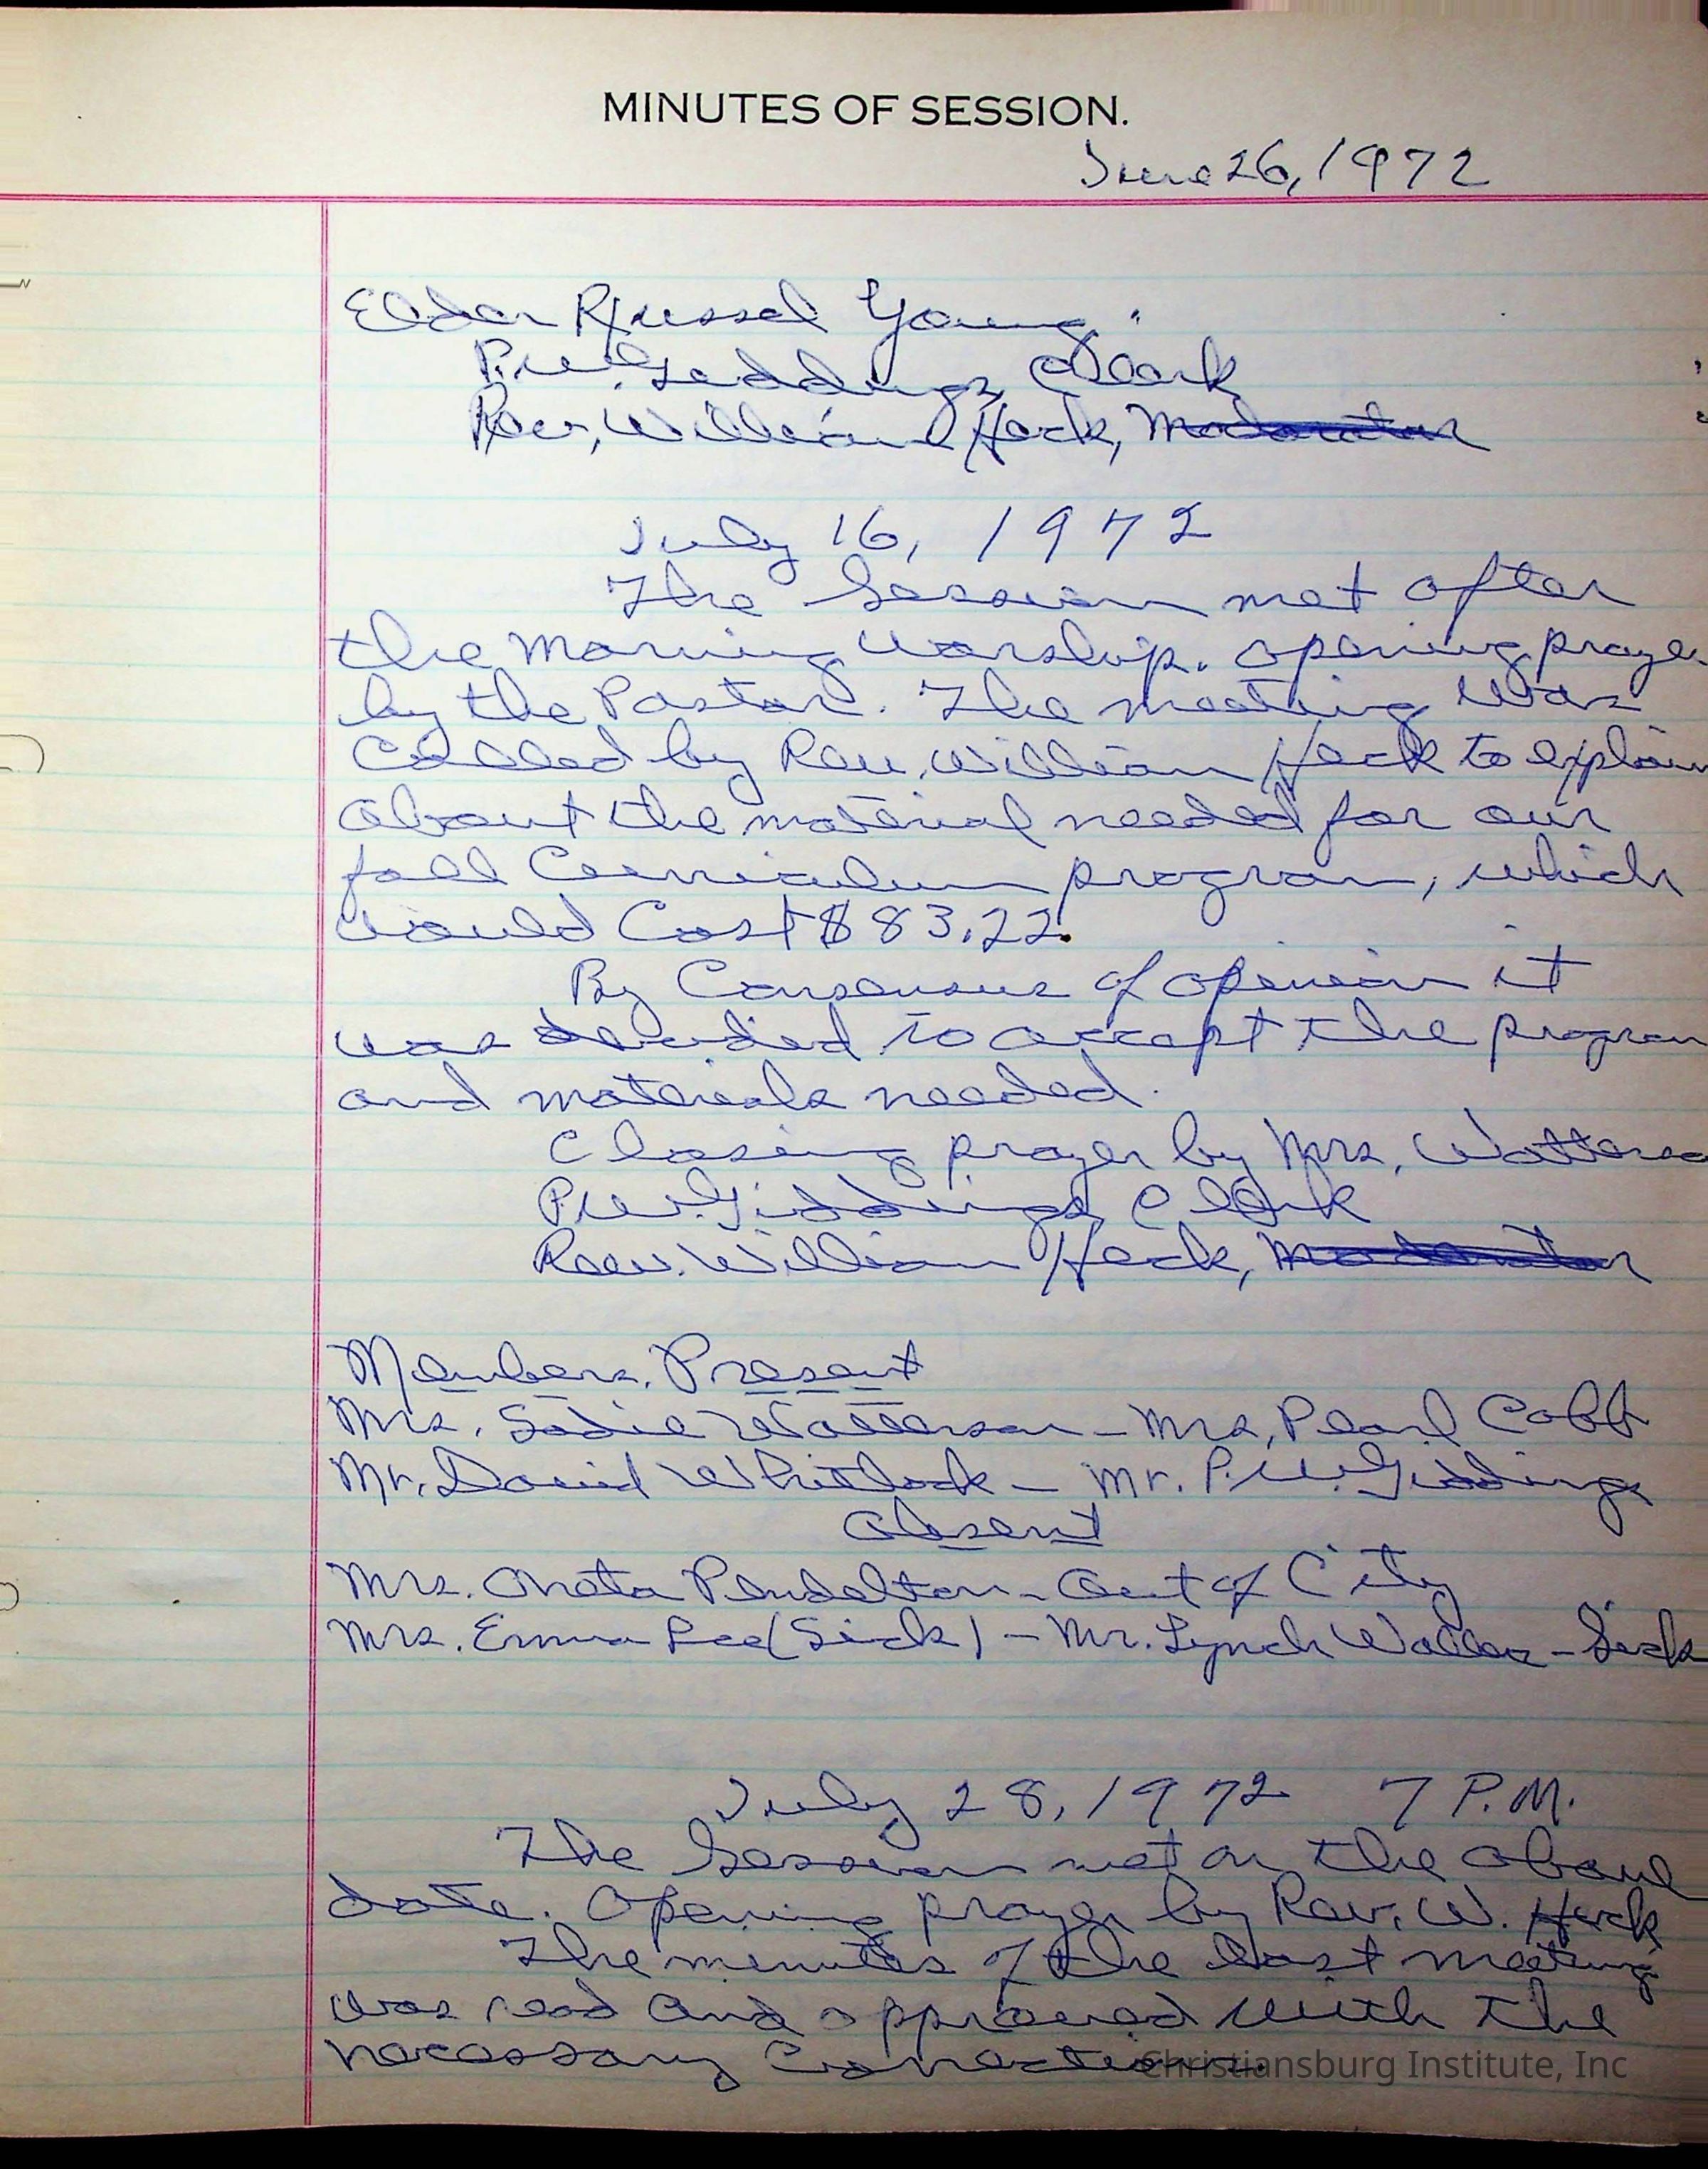 MINUTES OF SESSION.
June 26, 1972
Elder Russel Young.
P.W. Giddings, Clerk
Rev. William Heck, Moderator
July 16, 1972
The Session met after
the Morning Worship. Opening prayer
by the Pastor. The meeting was
Called by Rev. William Heck to explain
about the material needed for our
fall Curriculum program, which
would Cost $83.22.
By Consensus of opinion it
was decided to accept the program
and materials needed.
Closing prayer by Mrs. Watterso
P.W. Giddings, Clerk
Rev. William Heck, Moderator
Members Present
Mrs. Sadie Watterson - Mrs. Pearl Cobb
Mr. David Whitlock - Mr. P.W. Giddings
Absent
Mrs. Oneta Pendelton - Out of City
Mrs. Emma Lee (Sick) - Mr. Lynch Waller - Sick
July 28, 1972 7 P.M.
The Session met on the above
date. Opening prayer by Rev. W. Heck
The minutes of the last meeting
was read and approved with the
necessary Corrections.
Christiansburg Institute, Inc